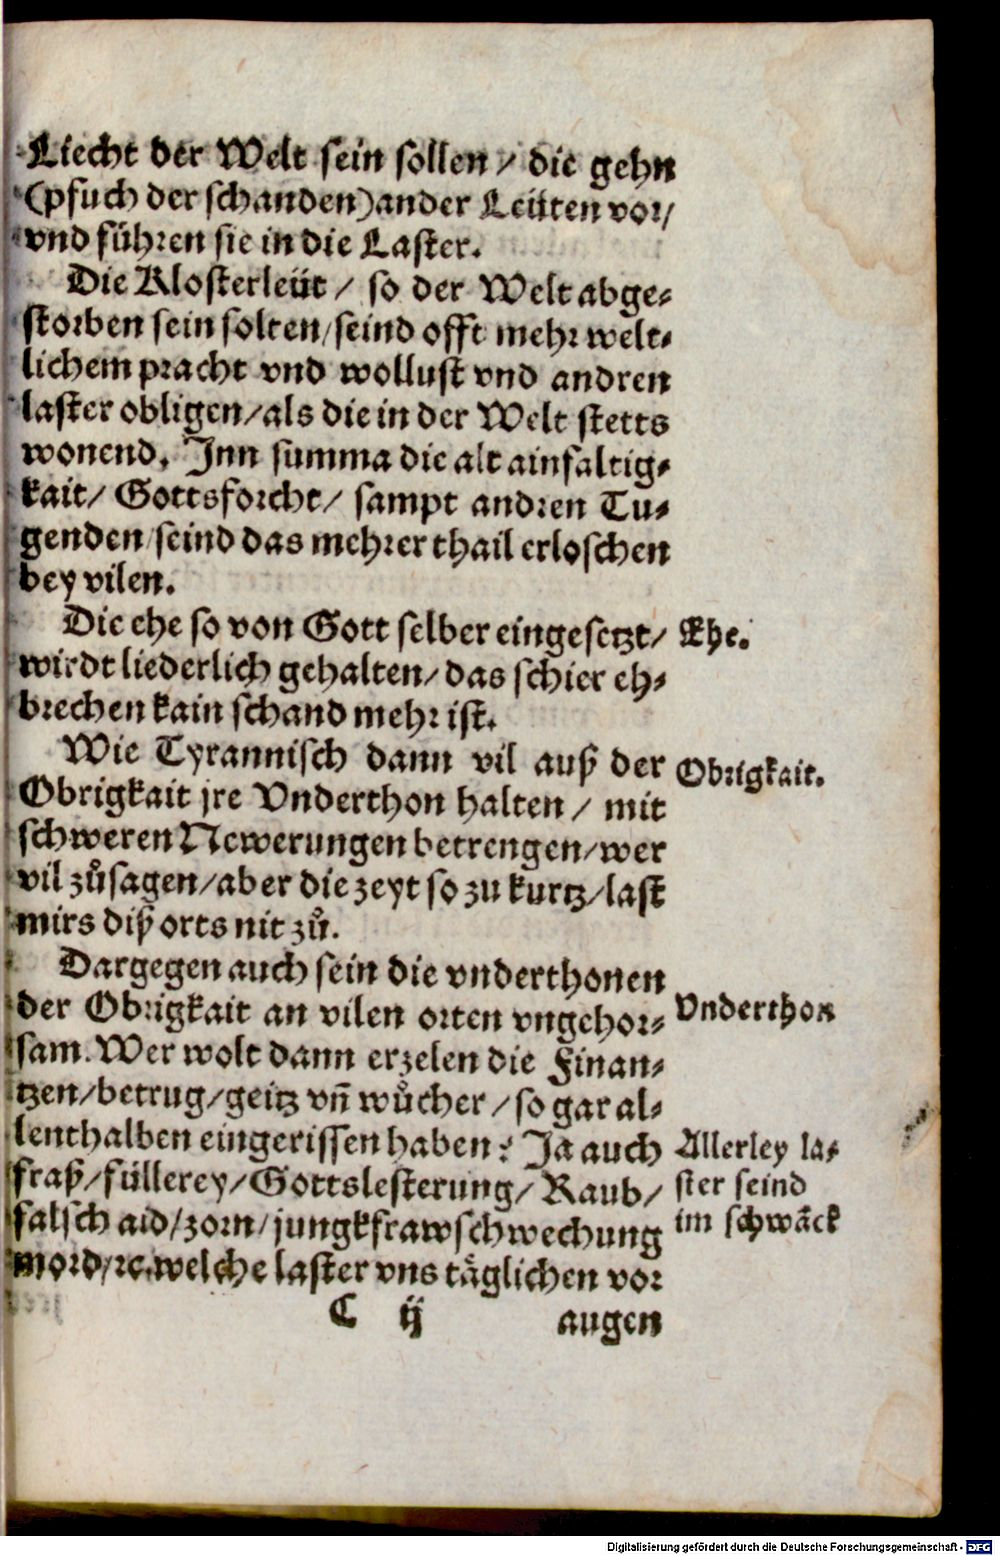 Liecht der Welt sein sollen / die gehn
(pfuch der schanden) ander Leüten vor/
vnd führen sie in die Laster.
Die Klosterleüt / so der Welt abge-
storben sein solten/seind offt mehr welt-
lichem pracht vnd wollust vnd andren
laster obligen/als die in der Welt stetts
wonend. Inn summa die alt ainfaltig-
kait/ Gottsforcht/ sampt andren Tu-
genden/seind das mehrer thail erloschen
bey vilen.
Die ehe so von Gott selber eingesetzt/ Ehe.
wirdt liederlich gehalten/das schier eh-
brechen kain schand mehr ist.
Wie Tyrannisch dann vil auß der
Obrigkait.
Obrigkait jre Vnderthon halten / mit
schweren Newerungen betrengen/wer
vil zůsagen/aber die zeyt so zu kurtz/last
mirs diß orts nit zů.
Dargegen auch sein die vnderthonen
der Obrigkait an vilen orten vngehor-
Vnderthon
sam. Wer wolt dann erzelen die Finan-
tzen/betrug/geitz vñ wůcher /so gar al-
lenthalben eingerissen haben? Ja auch
fraß/füllerey/Gottslesterung/ Raub/
falsch aid/zorn/jungkfrawschwechung
mord/ꝛc.welche laster vns täglichen vor
Allerley la-
ster seind
im schwāck
C ij augen
Digitalisierung gefördert durch die Deutsche Forschungsgemeinschaft - DFG